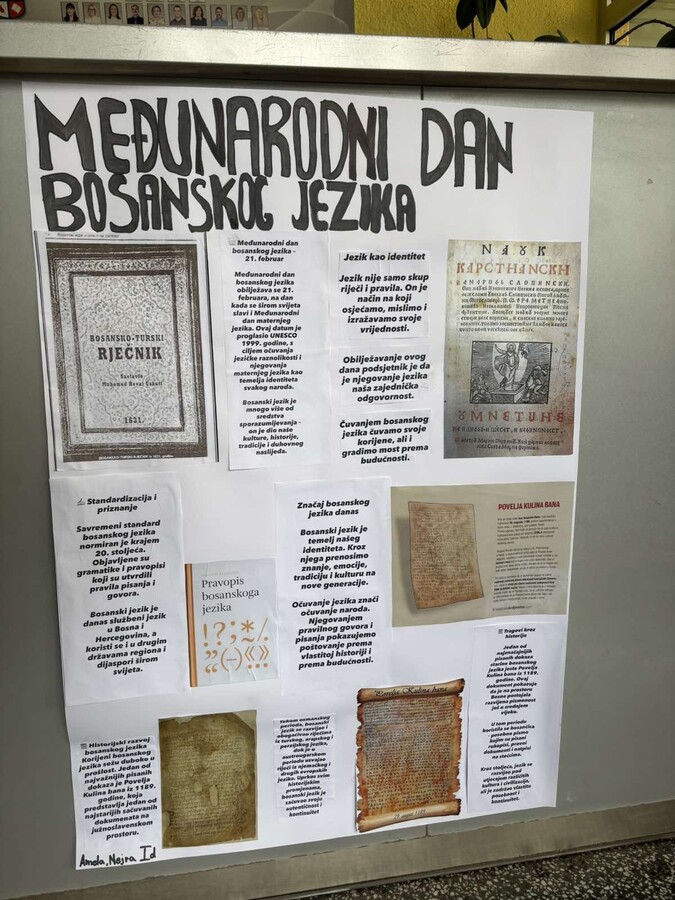 MEĐUNARODNI DAN
BOSANSKOG JEZIKA
BOSANSKO-TURSKI
RJEČNIK
1631.
Međunarodni dan
bosanskog jezika -
21. februar
Međunarodni dan
bosanskog jezika
obilježava se 21.
februara, na dan
kada se širom svijeta
slavi i Međunarodni
dan maternjeg
jezika. Ovaj datum je
proglasio UNESCO
1999. godine, s
ciljem očuvanja
jezičke raznolikosti i
njegovanja
maternjeg jezika kao
temelja identiteta
svakog naroda.
Bosanski jezik je
mnogo više od
sredstva
sporazumijevanja -
on je dio naše
kulture, historije,
tradicije i duhovnog
naslijeđa.
Jezik kao identitet
Jezik nije samo skup
riječi i pravila. On je
način na koji
osjećamo, mislimo i
izražavamo svoje
vrijednosti.
Obilježavanje ovog
dana podsjetnik je da
je njegovanje jezika
naša zajednička
odgovornost.
Čuvanjem bosanskog
jezika čuvamo svoje
korijene, ali i
gradimo most prema
budućnosti.
Standardizacija i
priznanje
Savremeni standard
bosanskog jezika
normiran je krajem
20. stoljeća.
Objavljene su
gramatike i pravopisi
koji su utvrdili
pravila pisanja i
govora.
Bosanski jezik je
danas službeni jezik
u Bosna i
Hercegovina, a
koristi se i u drugim
državama regiona i
dijaspori širom
svijeta.
Pravopis
bosanskoga
jezika
!?;*/
„“(–)«»
Značaj bosanskog
jezika danas
Bosanski jezik je
temelj našeg
identiteta. Kroz
njega prenosimo
znanje, emocije,
tradiciju i kulturu na
nove generacije.
Očuvanje jezika znači
očuvanje naroda.
Njegovanjem
pravilnog govora i
pisanja pokazujemo
poštovanje prema
vlastitoj historiji i
prema budućnosti.
POVELJA KULINA BANA
Historijski razvoj
bosanskog jezika
Korijeni bosanskog
jezika sežu duboko u
prošlost. Jedan od
najvažnijih pisanih
dokaza je Povelja
Kulina bana iz 1189.
godine, koja
predstavlja jedan od
najstarijih sačuvanih
dokumenata na
južnoslavenskom
prostoru.
Tokom osmanskog
perioda, bosanski
jezik se razvijao i
obogaćivao riječima
iz turskog, arapskog i
perzijskog jezika,
dok je u
austrougarskom
periodu usvajao
riječi iz njemačkog i
drugih evropskih
jezika. Uprkos svim
historijskim
promjenama,
bosanski jezik je
sačuvao svoju
autentičnost i
kontinuitet
Povelja Kulina bana
Tragovi kroz
historiju
Jedan od
najznačajnijih
pisanih dokaza
starine bosanskog
jezika jeste Povelja
Kulina bana iz 1189.
godine. Ovaj
dokument pokazuje
da je na prostoru
Bosne postojala
razvijena pismenost
još u srednjem
vijeku.
U tom periodu
koristila se bosančica
posebno pismo
kojim su pisani
rukopisi, pravni
dokumenti i natpisi
na stećcima.
Kroz stoljeća, jezik se
razvijao pod
utjecajem različitih
kultura i civilizacija,
ali je zadržao vlastitu
posebnost i
kontinuitet.
Amela, Nejra Id